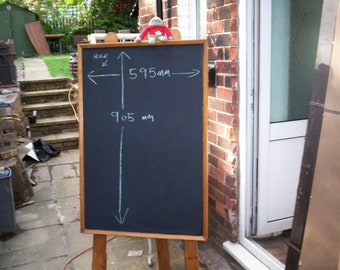 HOLE
595mm
905 mm